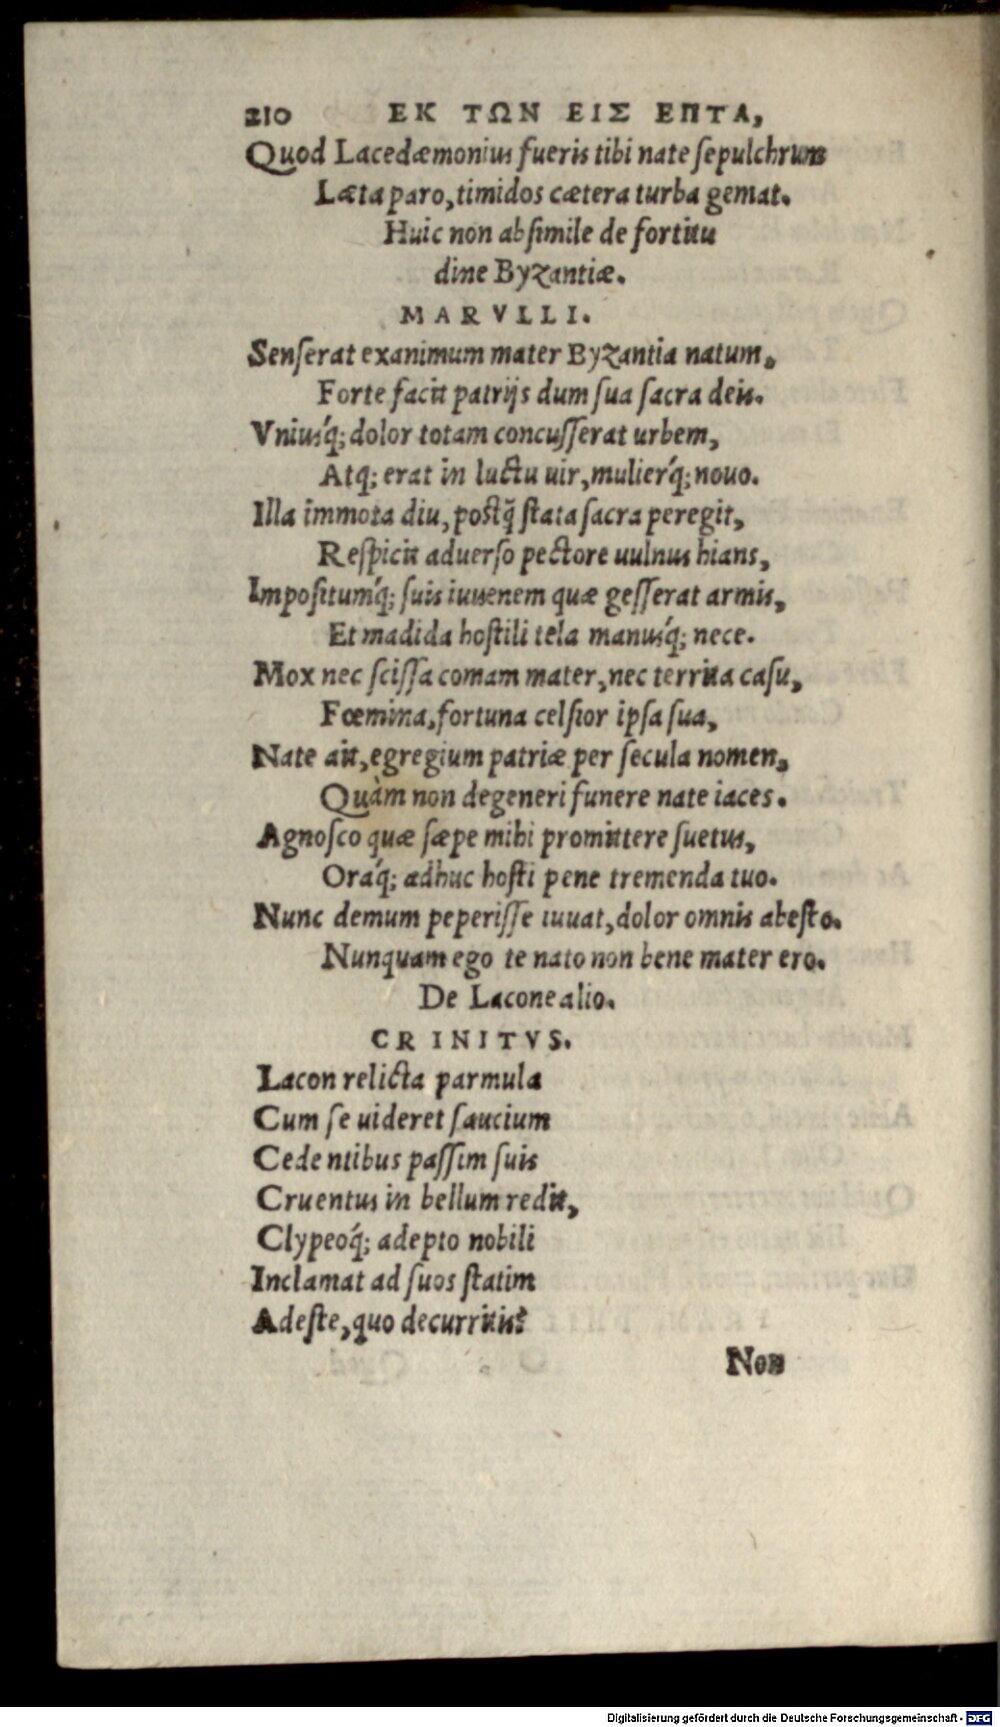 210 ΕΚ ΤΩΝ ΕΙΣ ΕΠΤΑ,
Quod Lacedæmonius fueris tibi nate ſepulchrum
Læta paro, timidos cætera turba gemat.
Huic non abſimile de fortitu
dine Byzantiæ.
MARVLLI.
Senſerat exanimum mater Byzantia natum,
Forte facit patrijs dum ſua ſacra deis.
Vniusq́; dolor totam concuſſerat urbem,
Atq; erat in luctu uir, mulierq́; nouo.
Illa immota diu, poſtq̃ ſtata ſacra peregit,
Reſpicit aduerſo pectore uulnus hians,
Impoſitumq́; ſuis iuuenem quæ geſſerat armis,
Et madida hoſtili tela manusq́; nece.
Mox nec ſciſſa comam mater, nec territa caſu,
Fœmina, fortuna celſior ipſa ſua,
Nate ait, egregium patriæ per ſecula nomen,
Quàm non degeneri funere nate iaces.
Agnoſco quæ ſæpe mihi promittere ſuetus,
Oraq́; adhuc hoſti pene tremenda tuo.
Nunc demum peperiſſe iuuat, dolor omnis abeſto.
Nunquam ego te nato non bene mater ero.
De Lacone alio.
CRINITVS.
Lacon relicta parmula
Cum ſe uideret ſaucium
Cedentibus paſſim ſuis
Cruentus in bellum redit,
Clypeoq́; adepto nobili
Inclamat ad ſuos ſtatim
Adeſte, quo decurritis?
Non
Digitalisierung gefördert durch die Deutsche Forschungsgemeinschaft - DFG